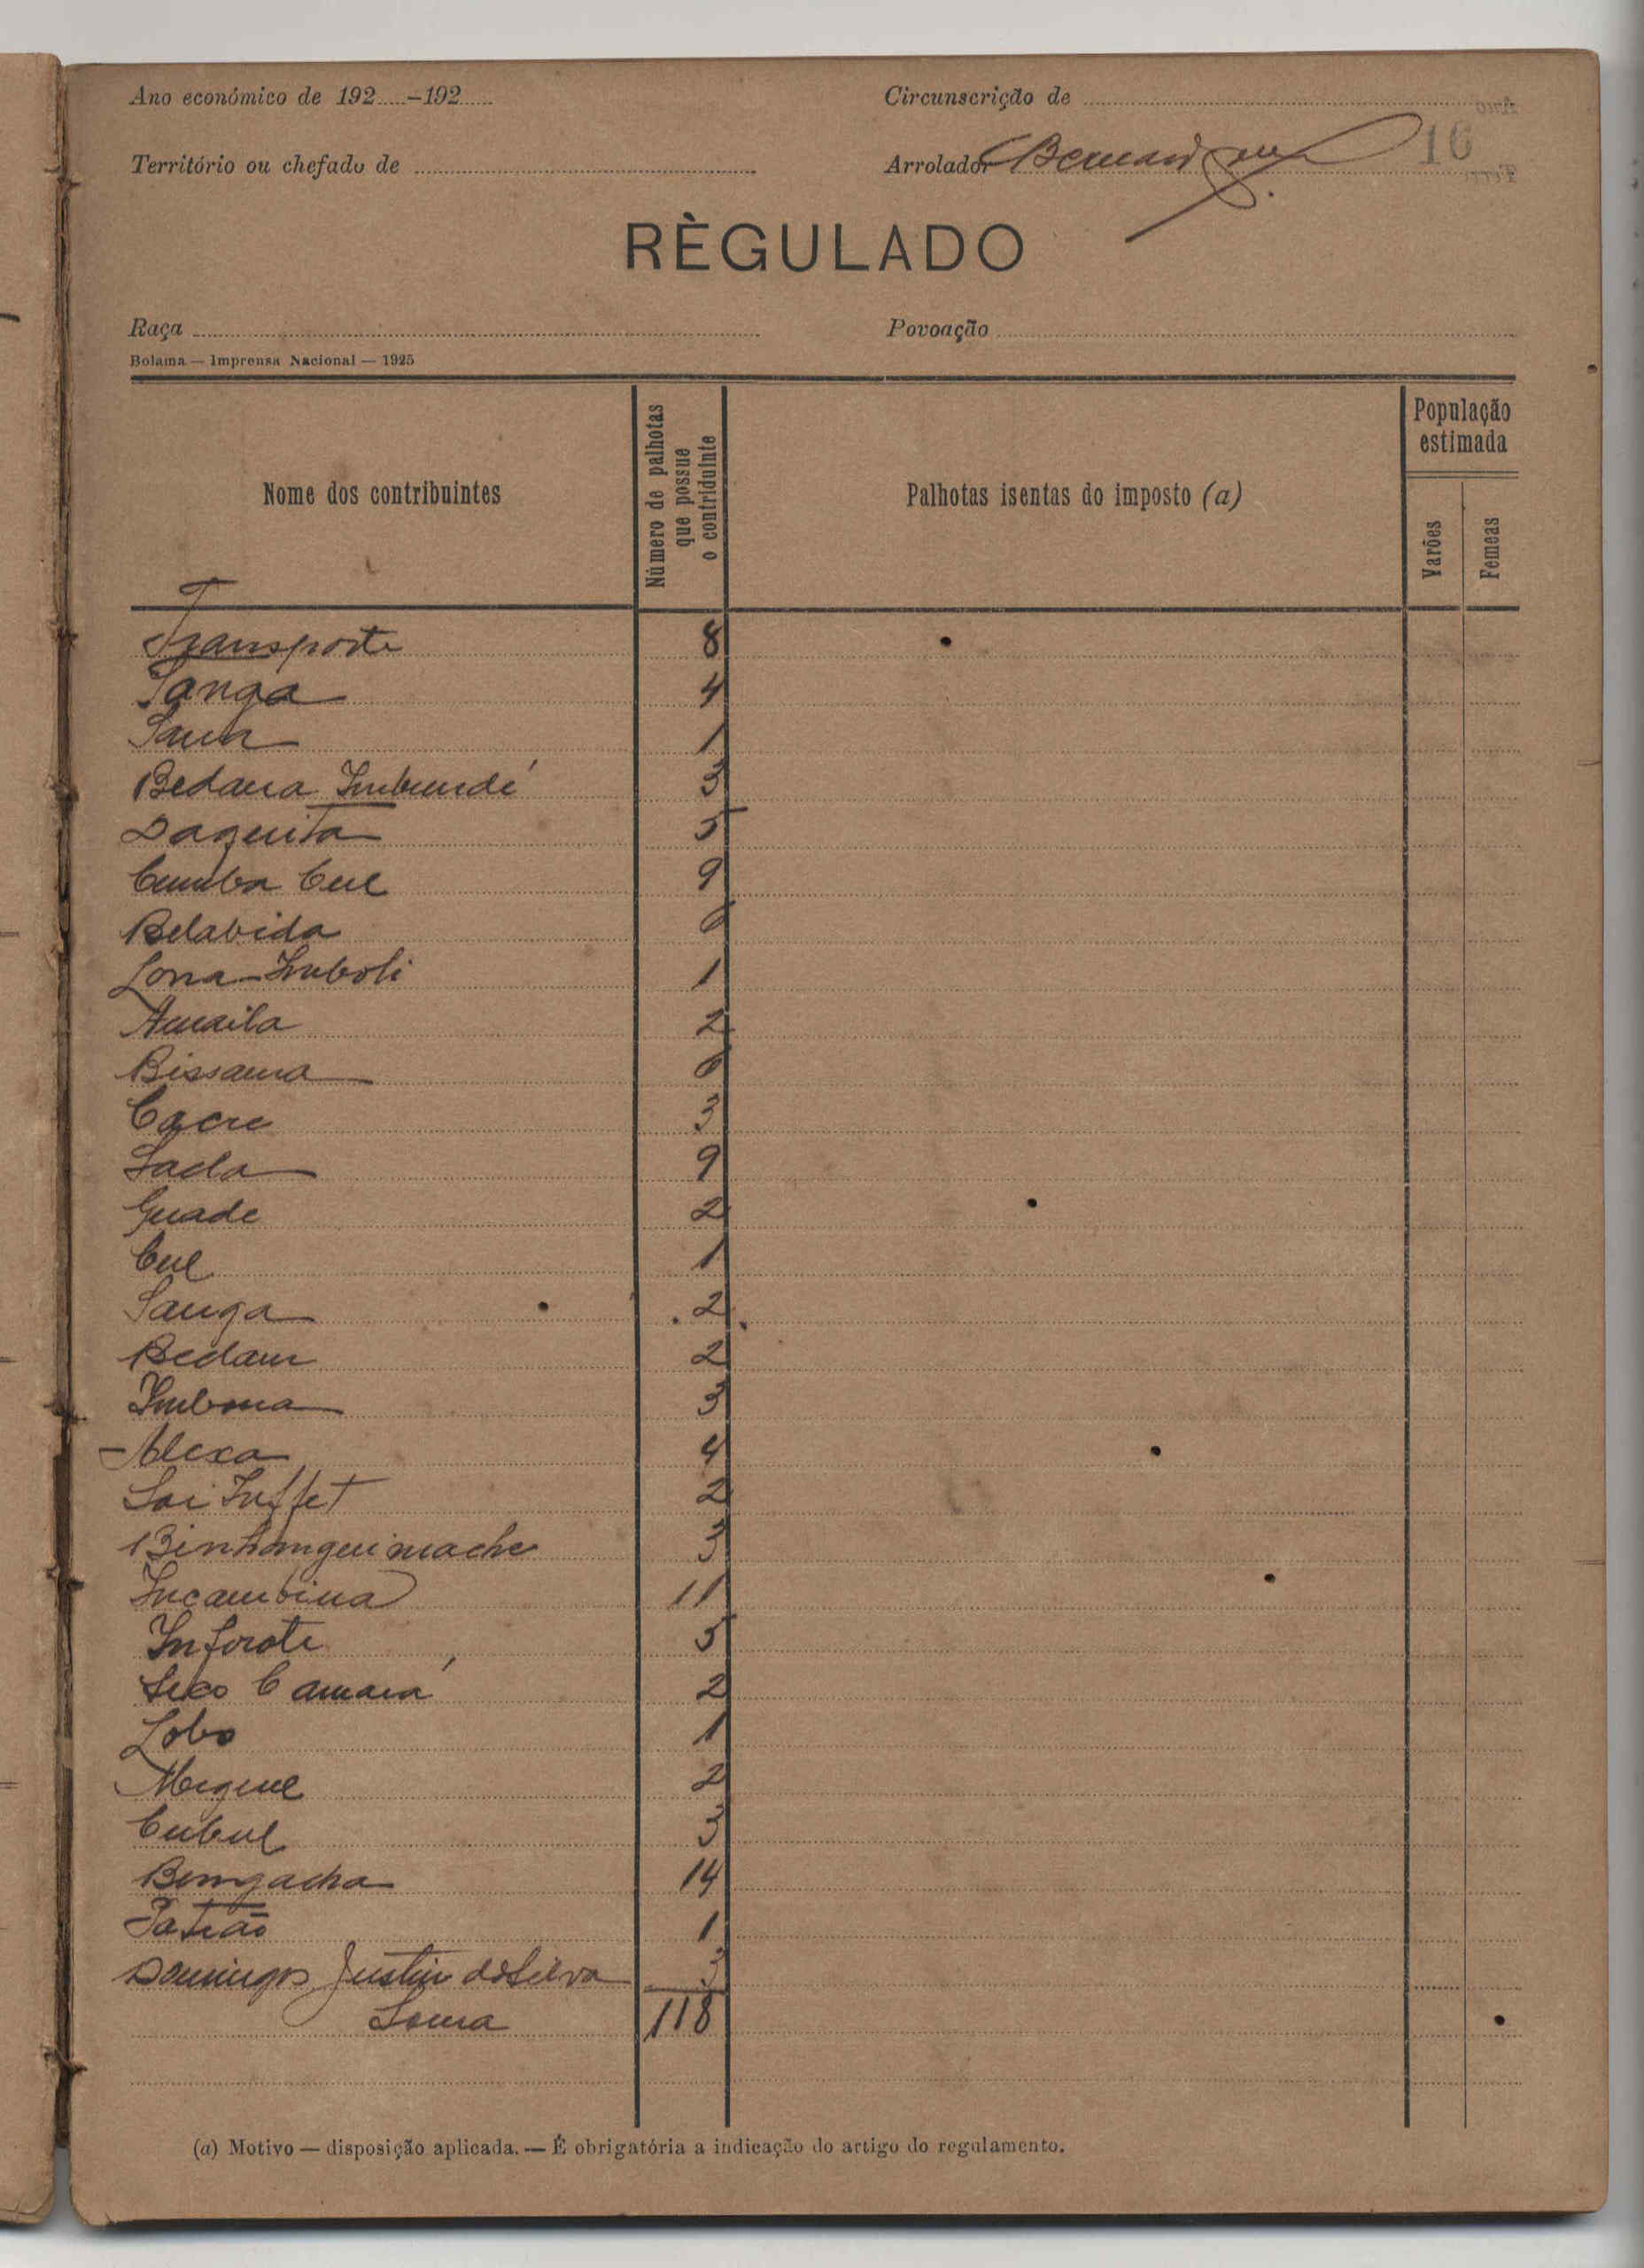 Ano económico de 192.....–192..... Circunscrição de
Território ou chefado de Arrolador
16
RÈGULADO
Raça Povoação
Bolama — Imprensa Nacional — 1925
Nome dos contribuintes
Número de palhotas que possue o contriduinte
Palhotas isentas do imposto (a)
População estimada
Varões
Femeas
Transporte 8
Sanga 4
Saun 1
Bedana Imbundé 3
Daquita 5
Cumba Cul 9
Belabida 6
Lona-Imboli 1
Amaila 2
Bissama 6
Cacre 3
Sada 9
Guade 2
Cul 1
Sanga 2
Bedam 2
Imbona 3
Alexa 4
Sai Iuffet 2
Binhanguimache 3
Incambina 11
Inforote 5
Seco Camará 2
Lobo 1
Miguel 2
Cubul 3
Bemgacha 14
Patrão 1
Domingos Justin da Silva 3
Soma 118
(a) Motivo — disposição aplicada. — É obrigatória a indicação do artigo do regulamento.